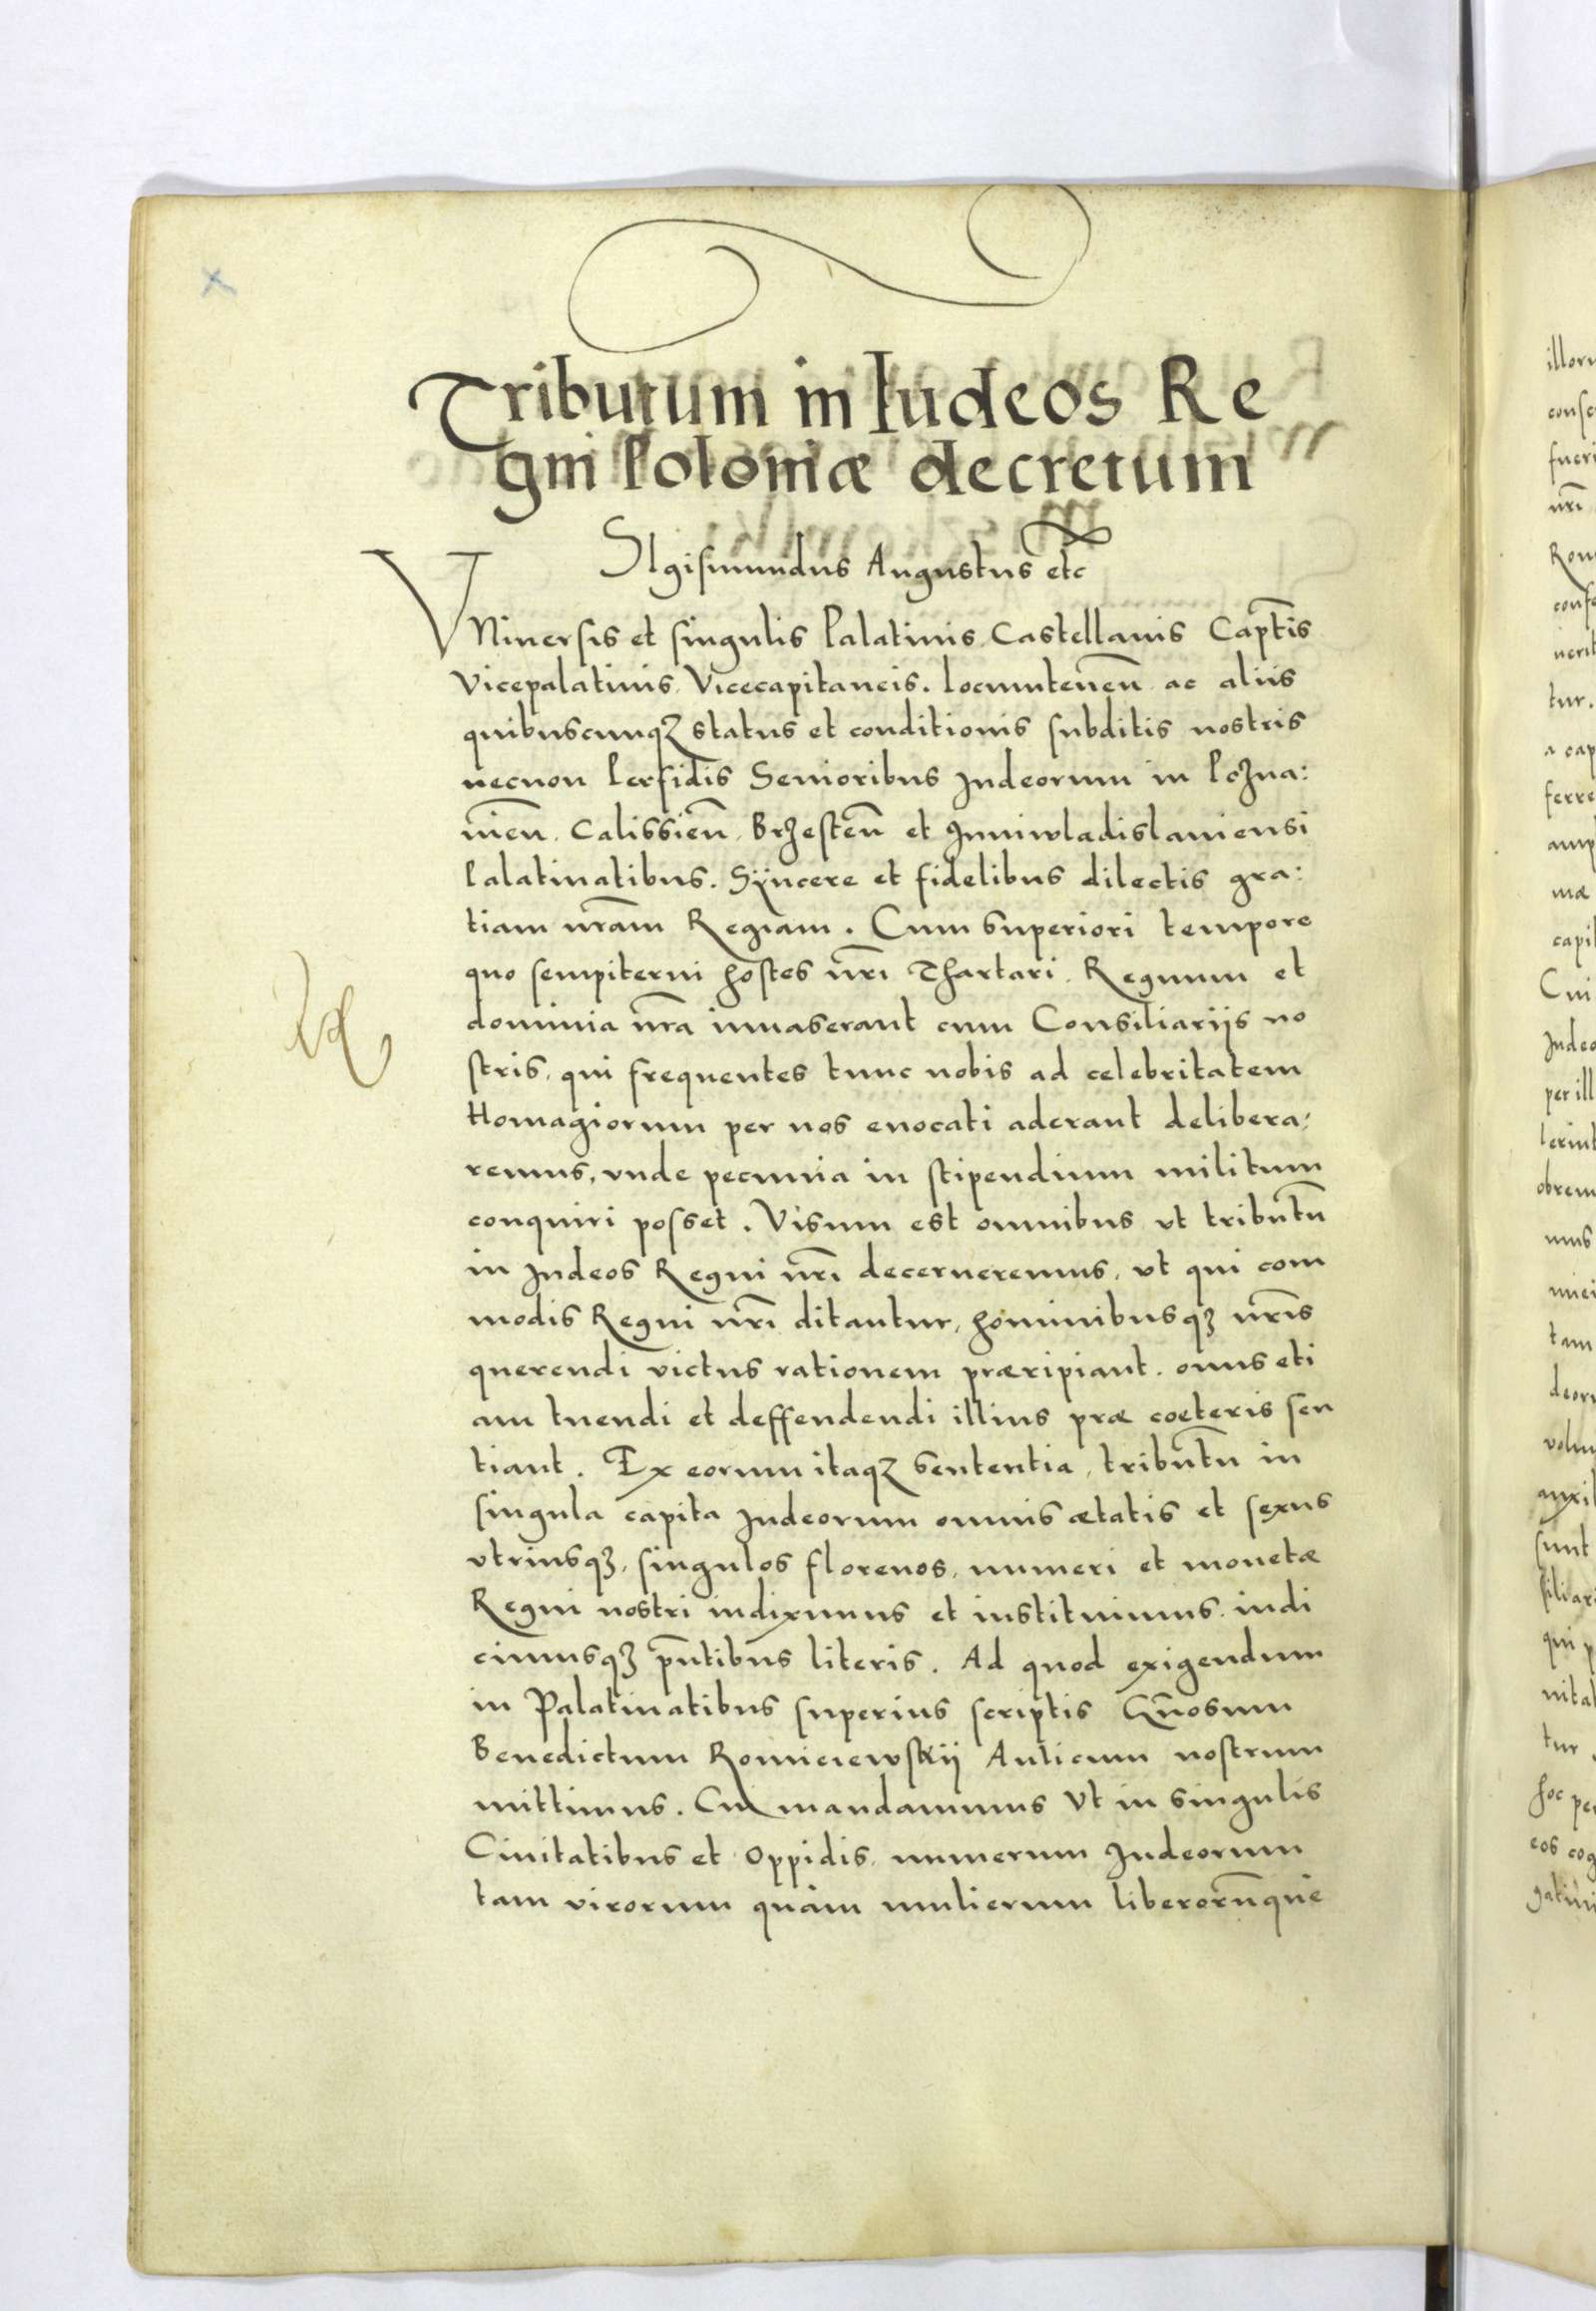 Tributum in Iudeos Re
gni Poloniæ decretum
SIgismundus Augustus etc
VNiuersis et singulis Palatinis, Castellanis Captīs
Vicepalatinis, Vicecapitaneis. locumteneñ ac aliis
quibuscunqꝫ status et conditionis subditis nostris
necnon Perfidis Senioribus Judeorum in Pozna:
nieñ. Calissieñ, Brzesteñ et Junniwladislauiensi
Palatinatibus. Sÿncere et fidelibus dilectis gra:
tiam nr̄am Regiam. Cum superiori tempore
quo sempiterni hostes nr̄i Thartari. Regnum et
dominia nr̄a inuaserant cum Consiliariijs no
stris, qui frequentes tunc nobis ad celebritatem
Homagiorum per nos euocati aderant delibera:
remus, vnde pecunia in stipendium militum
conquiri posset. Visum est omnibus vt tributū
in Judeos Regni nr̄i decerneremus, vt qui com
modis Regni nr̄i ditantur, hominibusqꝫ nr̄is
querendi victus rationem præripiant. onus eti
am tuendi et deffendendi illius præ coeteris sen
tiant. Ex eorum itaqꝫ sententia, tributū in
singula capita Judeorum omnis ætatis et sexus
vtriusqꝫ, singulos florenos, numeri et monetæ
Regni nostri indiximus et instituimus, indi
cimusqꝫ pn̄tibus literis. Ad quod exigendum
in Palatinatibus superius scriptis Gn̄osum
Benedictum Romiciewskij Aulicum nostrum
mittimus. Cui mandauimus Vt in singulis
Ciuitatibus et Oppidis, numerum Judeorum
tam virorum quàm mulierum liberorūque